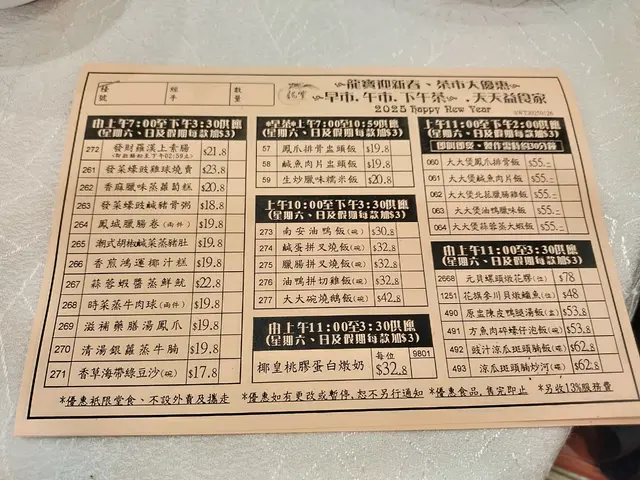 檯號
經手
數量
龍寶迎新春、茶市大優惠
早市、午市、下午茶、天天益食家
2025 Happy New Year
由上午7:00至下午3:30供應
(星期六、日及假期每款加$3)
272 發財羅漢上素腸 $21.8
261 發菜蠔豉雞球燒賣 $23.8
262 香麻臘味蒸蘿蔔糕 $20.8
263 發菜蠔豉鹹豬骨粥 $18.8
264 鳳城臘腸卷(兩件) $19.8
265 潮式胡椒鹹菜蒸豬肚 $19.8
266 香煎鴻運椰汁糕 $19.8
267 蒜蓉蝦醬蒸鮮魷 $22.8
268 時菜蒸牛肉球(兩件) $19.8
269 滋補藥膳湯鳳爪 $19.8
270 清湯銀蘿蒸牛腩 $19.8
271 香草海帶綠豆沙(碗) $17.8
早茶上午7:00至10:59供應
(星期六、日及假期每款加$3)
57 鳳爪排骨盅頭飯 $19.8
58 鹹魚肉片盅頭飯 $19.8
59 生炒臘味糯米飯 $20.8
上午10:00至下午3:30供應
(星期六、日及假期每款加$3)
273 南安油鴨飯(碗) $30.8
274 鹹蛋拼叉燒飯(碗) $32.8
275 臘腸拼叉燒飯(碗) $32.8
276 油鴨拼切雞飯(碗) $32.8
277 大大碗燒鵝飯(碗) $42.8
由上午11:00至3:30供應
(星期六、日及假期每款加$3)
椰皇桃膠蛋白燉奶 每位 $32.8 9801
上午11:00至下午2:00供應
(星期六、日及假期每款加$3)
即叫即煲,製作需時約30分鐘
060 大大煲鳳爪排骨飯 $55.-
061 大大煲鹹魚肉片飯 $55.-
062 大大煲北菇臘腸雞飯 $55.-
063 大大煲油鴨臘味飯 $55.-
064 大大煲蒜蓉蒸大蝦飯 $55.-
由上午11:00至3:30供應
(星期六、日及假期每款加$3)
2668 元貝螺頭燉花膠(位) $78
1251 花旗參川貝燉鱷魚(位) $48
490 原盅陳皮鴨腿湯飯(盅) $53.8
491 方魚肉碎蠔仔泡飯(窩) $53.8
492 豉汁涼瓜斑頭腩飯(碟) $62.8
493 涼瓜斑頭腩炒河(碟) $62.8
*優惠祇限堂食、不設外賣及攜走 *優惠如有更改或暫停,恕不另行通知 *優惠食品,售完即止 *另收13%服務費